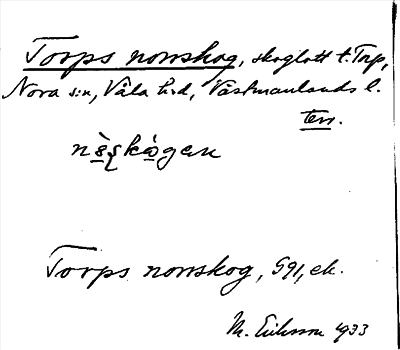 Torps norrskog, skoglott t. Torp,
Nora s:n, Våla h:d, Västmanlands l.
terr.
Torps norrskog, 591, ek.
M. Eriksson 1933